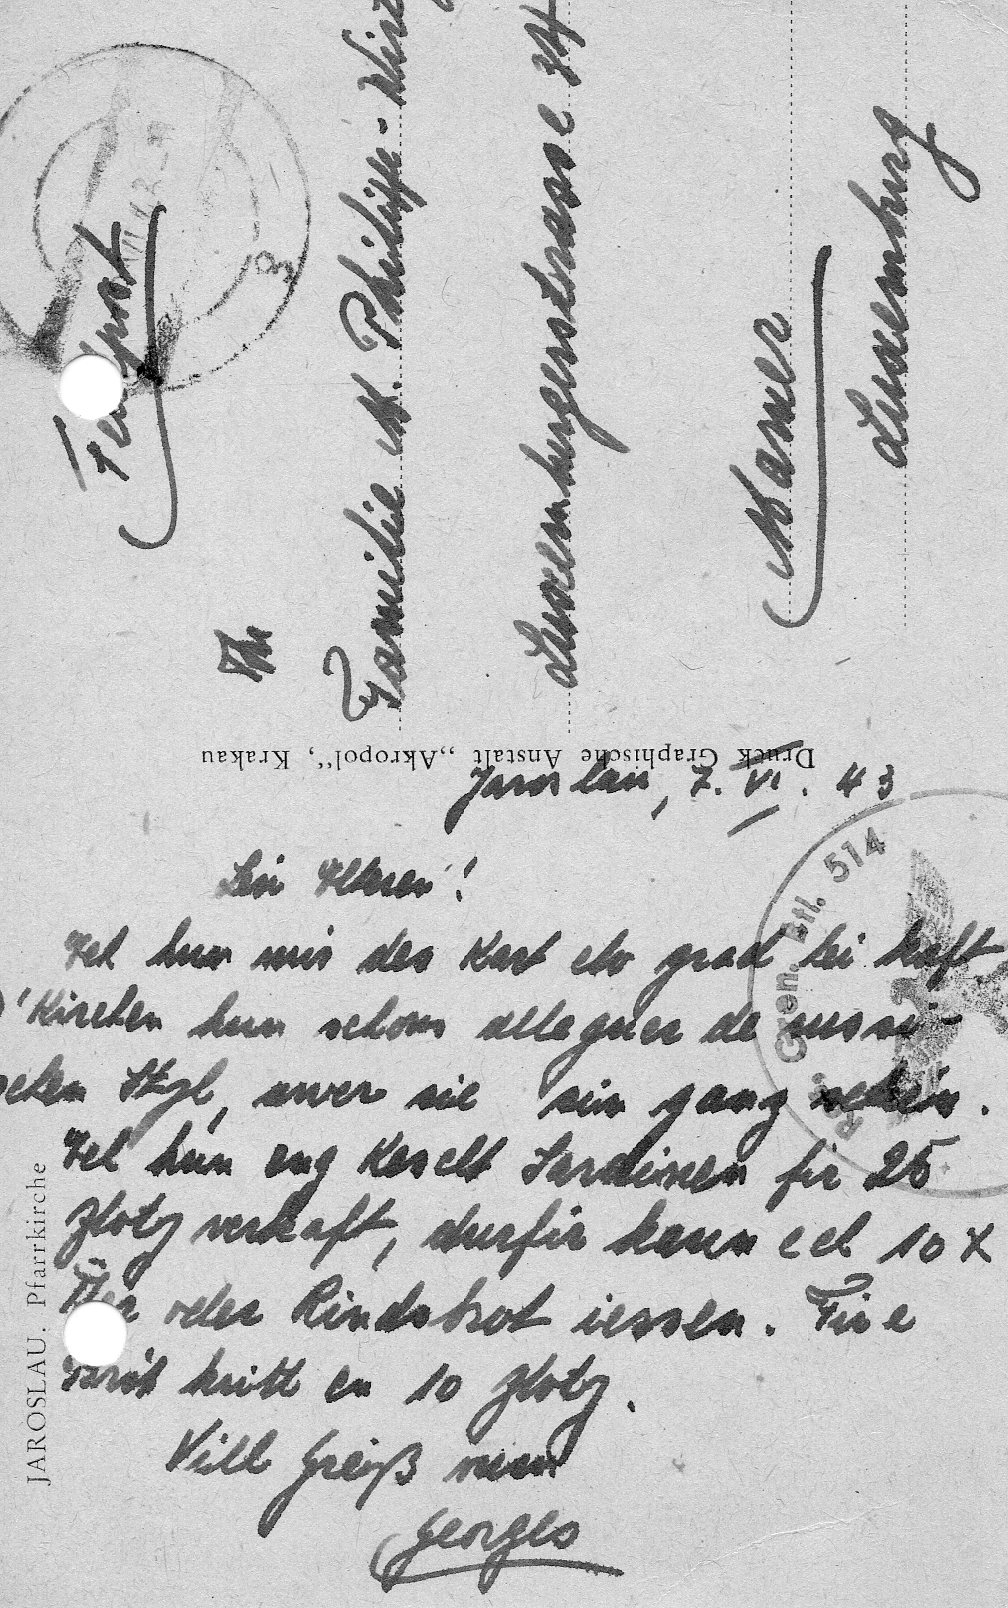 Feldpost
An
Familie M. Philippe-Wirt
Luxemburgerstrasse 34
Mamer
Luxemburg
Druck Graphische Anstalt „Akropol", Krakau
Jaroslau, 7. VI. 43
Gren. Btl. 514
Léi Elteren!
Ech hun mir des Kart elo grad hei kaft
D'Kirchen hun schons alleguer de russi-
schen Styl, awer sie sin ganz schein.
Ech hun eng Kescht Sardinen fir 25
Zloty verkaft, durfir kann ech 10 X
Eer oder Rindsbrot iessen. Fir e
Brot hritt en 10 Zloty.
Vill Greiß vum
Georges
JAROSLAU. Pfarrkirche